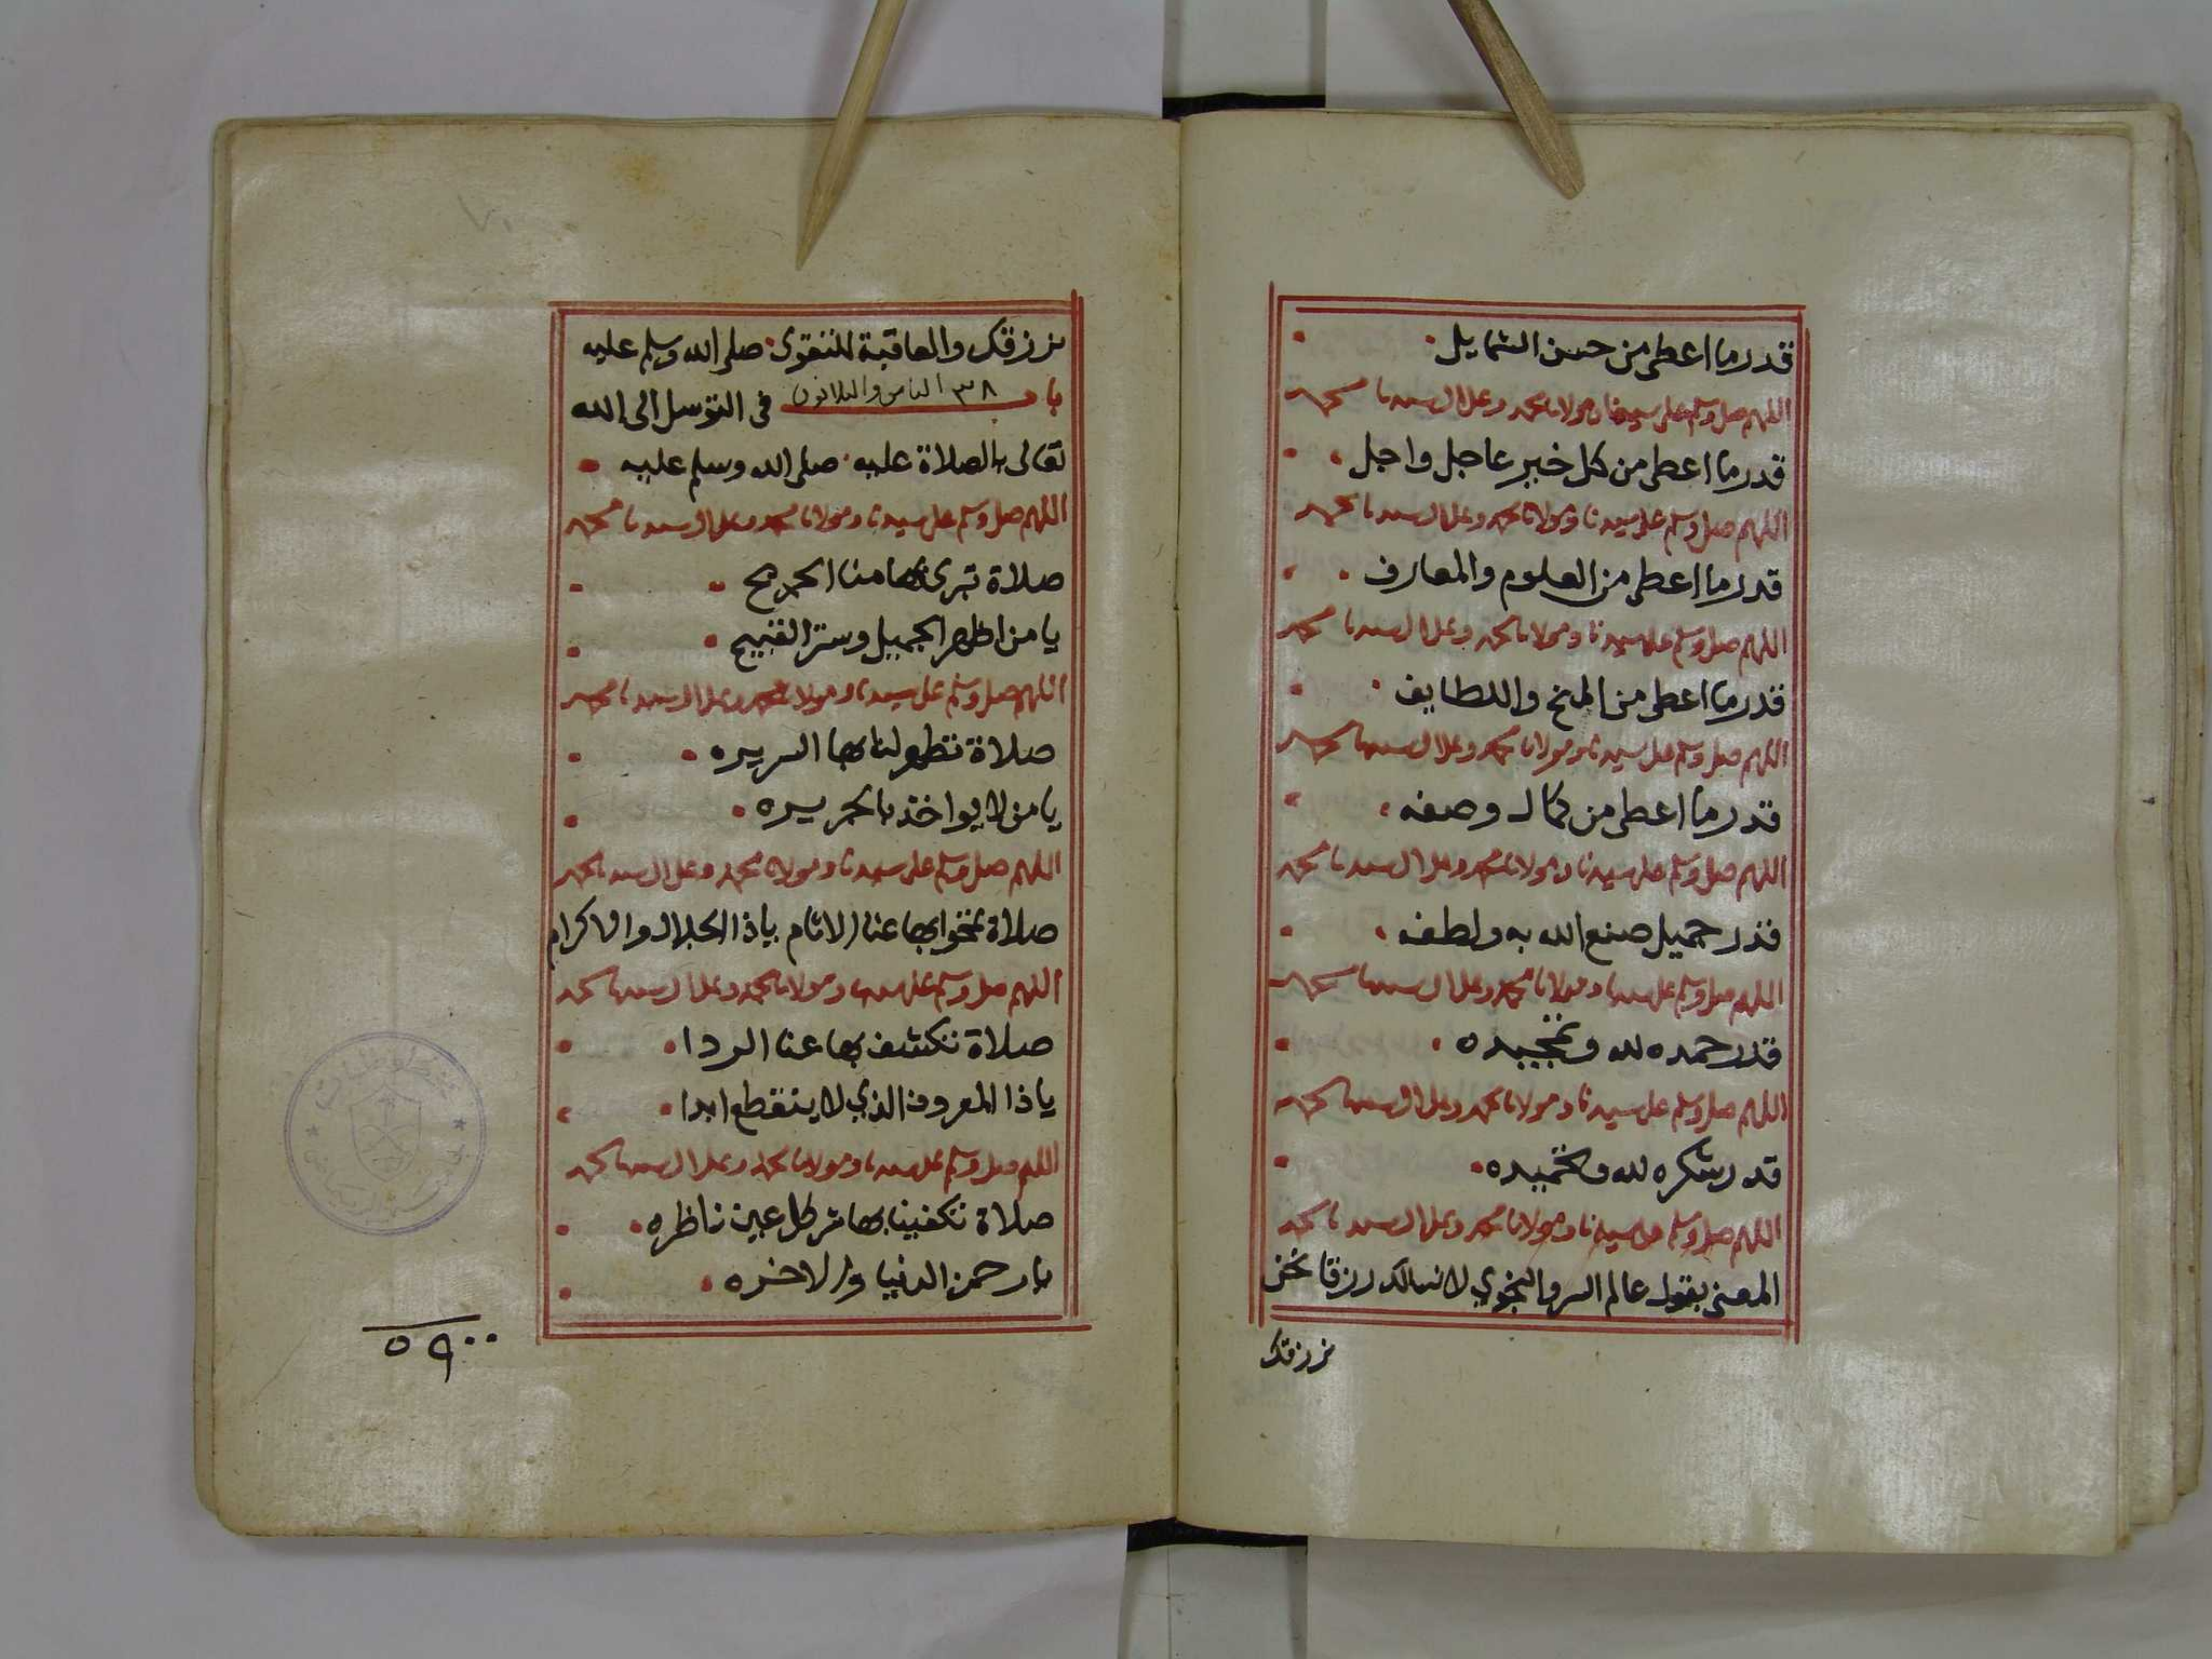 قدر ما اعطى من حسن الشمايل
اللهم صل وسلم على سيدنا ومولانا محمد وعلى ال سيدنا محمد
قدر ما اعطى من كل خير عاجل واجل
اللهم صل وسلم على سيدنا ومولانا محمد وعلى ال سيدنا محمد
قدر ما اعطى من العلوم والمعارف
اللهم صل وسلم على سيدنا ومولانا محمد وعلى ال سيدنا محمد
قدر ما اعطى من المنح واللطايف
اللهم صل وسلم على سيدنا ومولانا محمد وعلى ال سيدنا محمد
قدر ما اعطى من كمال وصفه
اللهم صل وسلم على سيدنا ومولانا محمد وعلى ال سيدنا محمد
قدر جميل صنع الله به ولطفه
اللهم صل وسلم على سيدنا ومولانا محمد وعلى ال سيدنا محمد
قدر حمده لله وتمجيده
اللهم صل وسلم على سيدنا ومولانا محمد وعلى ال سيدنا محمد
قدر شكره لله وتحميده
اللهم صل وسلم على سيدنا ومولانا محمد وعلى ال سيدنا محمد
المعنى بقول عالم السر والنجوي لا نسالك رزقا نحن
نرزقك
نرزقك والعاقبة للتقوى صلى الله وسلم عليه
باب ٣٨ الثامن والثلاثون في التوسل الى الله
تعالى بالصلاة عليه صلى الله وسلم عليه
اللهم صل وسلم على سيدنا ومولانا محمد وعلى ال سيدنا محمد
صلاة تبرى بها منا الجريح
يا من اظهر الجميل وستر القبيح
اللهم صل وسلم على سيدنا ومولانا محمد وعلى ال سيدنا محمد
صلاة تطهر لنا بها السريره
يا من لا يواخذ بالجريره
اللهم صل وسلم على سيدنا ومولانا محمد وعلى ال سيدنا محمد
صلاة تمحوا بها عنا الاثام ياذا الجلال والاكرام
اللهم صل وسلم على سيدنا ومولانا محمد وعلى ال سيدنا محمد
صلاة تكشف بها عنا الردا
ياذا المعروف الذي لا ينقطع ابدا
اللهم صل وسلم على سيدنا ومولانا محمد وعلى ال سيدنا محمد
صلاة تكفينا بها شر كل عين ناظره
يا رحمن الدنيا والاخره
٥٩٠٠